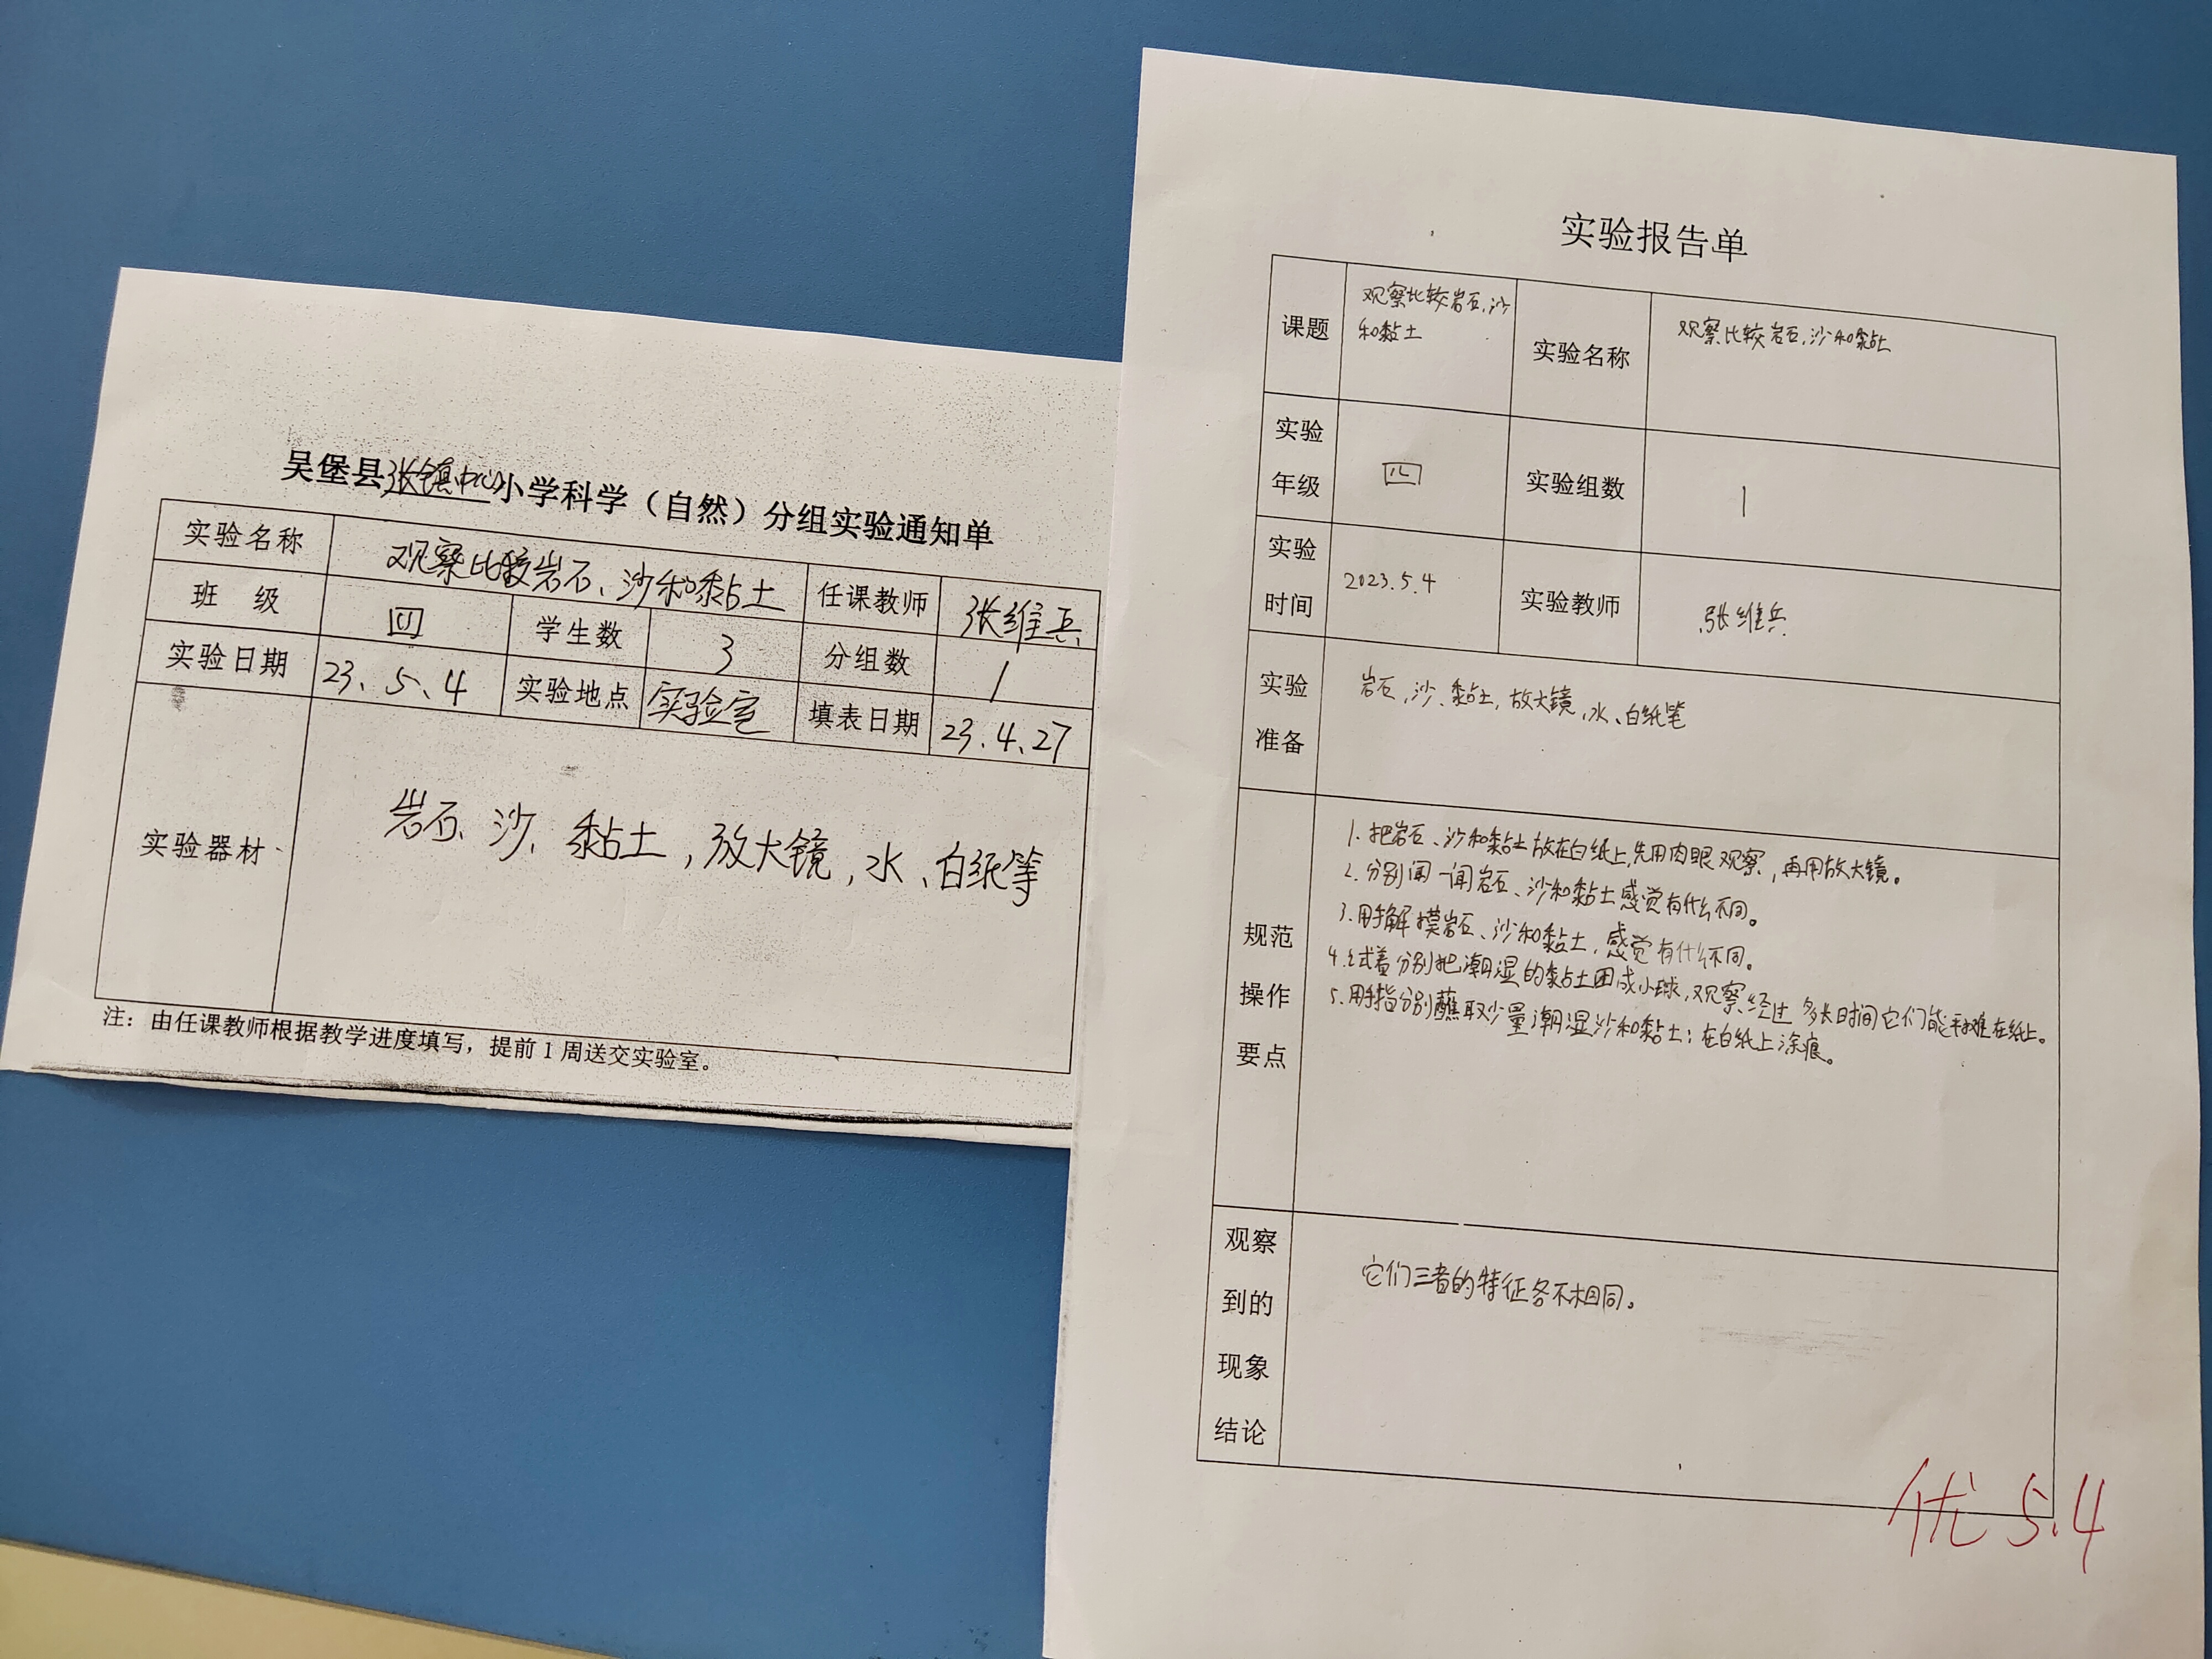 吴堡县张镇中心小学科学（自然）分组实验通知单
实验名称 观察比较岩石、沙和黏土 任课教师 张维兵
班 级 四 学生数 3 分组数 1
实验日期 23、5、4 实验地点 实验室 填表日期 23、4、27
实验器材 岩石、沙、黏土，放大镜，水、白纸等
注：由任课教师根据教学进度填写，提前1周送交实验室。
实验报告单
课题 观察比较岩石、沙
和黏土
实验名称 观察比较岩石、沙和黏土
实验
年级
四
实验组数 1
实验
时间
2023.5.4
实验教师 张维兵
实验
准备
岩石、沙、黏土，放大镜，水、白纸笔
规范
操作
要点
1. 把岩石、沙和黏土放在白纸上，先用肉眼观察，再用放大镜。
2. 分别闻一闻岩石、沙和黏土感觉有什么不同。
3. 用手解摸岩石、沙和黏土，感觉有什么不同。
4. 试着分别把潮湿的黏土团成小球，观察经过多长时间它们能 在纸上。
5. 用手指分别蘸取少量潮湿沙和黏土；在白纸上涂痕。
观察
到的
现象
结论
它们三者的特征各不相同。
优 5.4